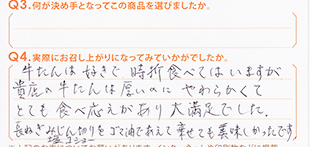 Q3.何が決め手となってこの商品を選びましたか。
Q4.実際にお召し上がりになってみていかがでしたか。
牛たんは好きで 時折食べてはいますが
貴店の牛たんは厚いのに やわらかくて
とても食べ応えがあり大満足でした。
長ねぎみじん切りをゴマ油であえて乗せても美味しかったです
塩コショー